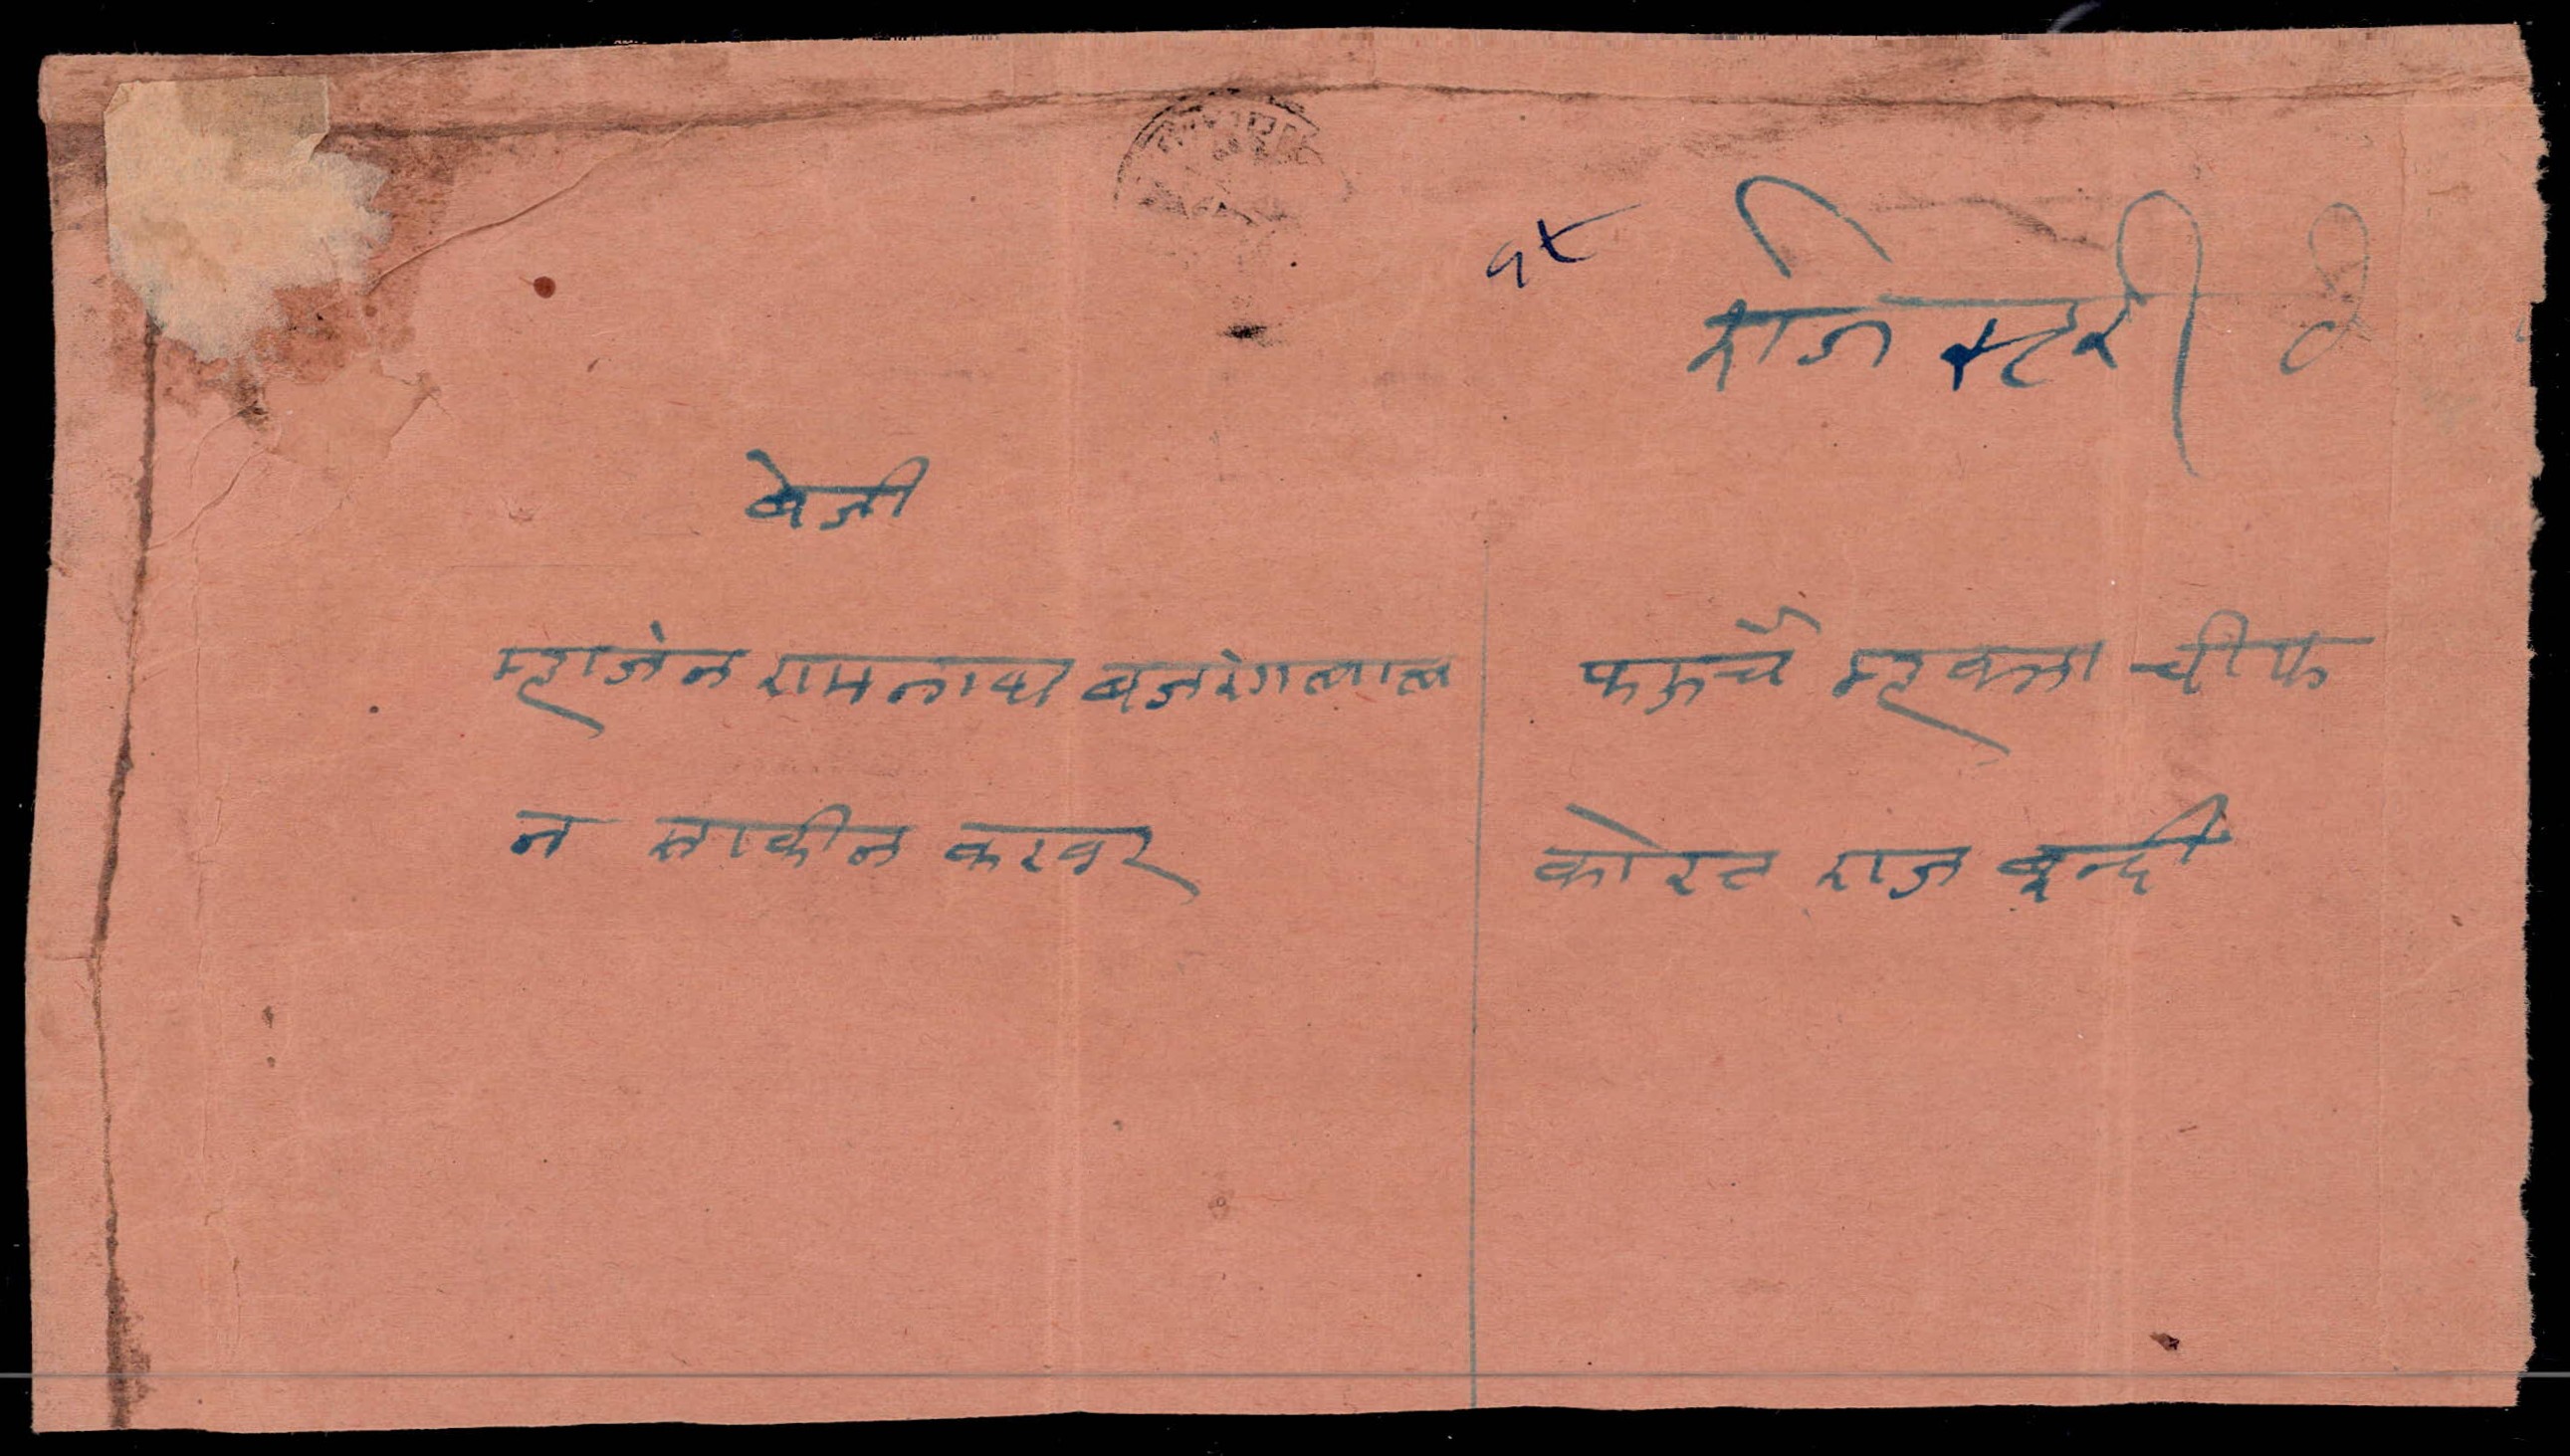 १५
रजिस्टरी
बेजी
म्हाजन रामनाथ बजरंगलाल
न साकीन करवर
फहुचे म्हकमा चीफ
कोरट राज बून्दी